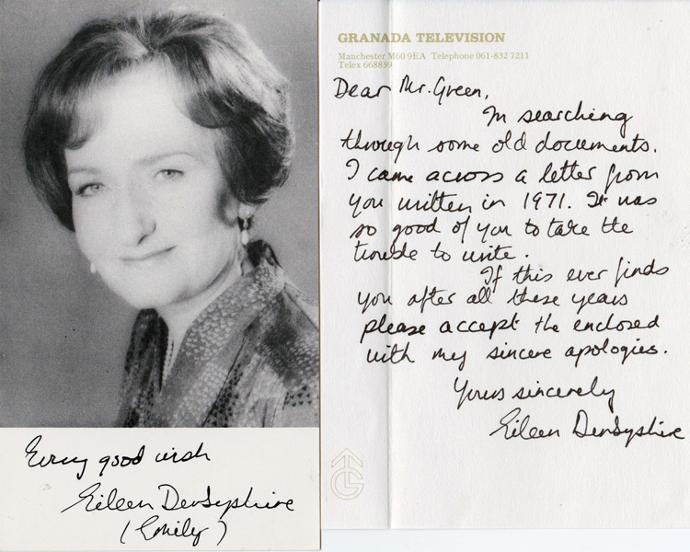 Every good wish
Eileen Derbyshire
(Emily)
GRANADA TELEVISION
Manchester M60 9EA Telephone 061-832 7211
Telex 668859
Dear Mr. Green,
In searching
through some old documents.
I came across a letter from
you written in 1971. It was
so good of you to take the
trouble to write.
If this ever finds
you after all these years
please accept the enclosed
with my sincere apologies.
Yours sincerely
Eileen Derbyshire